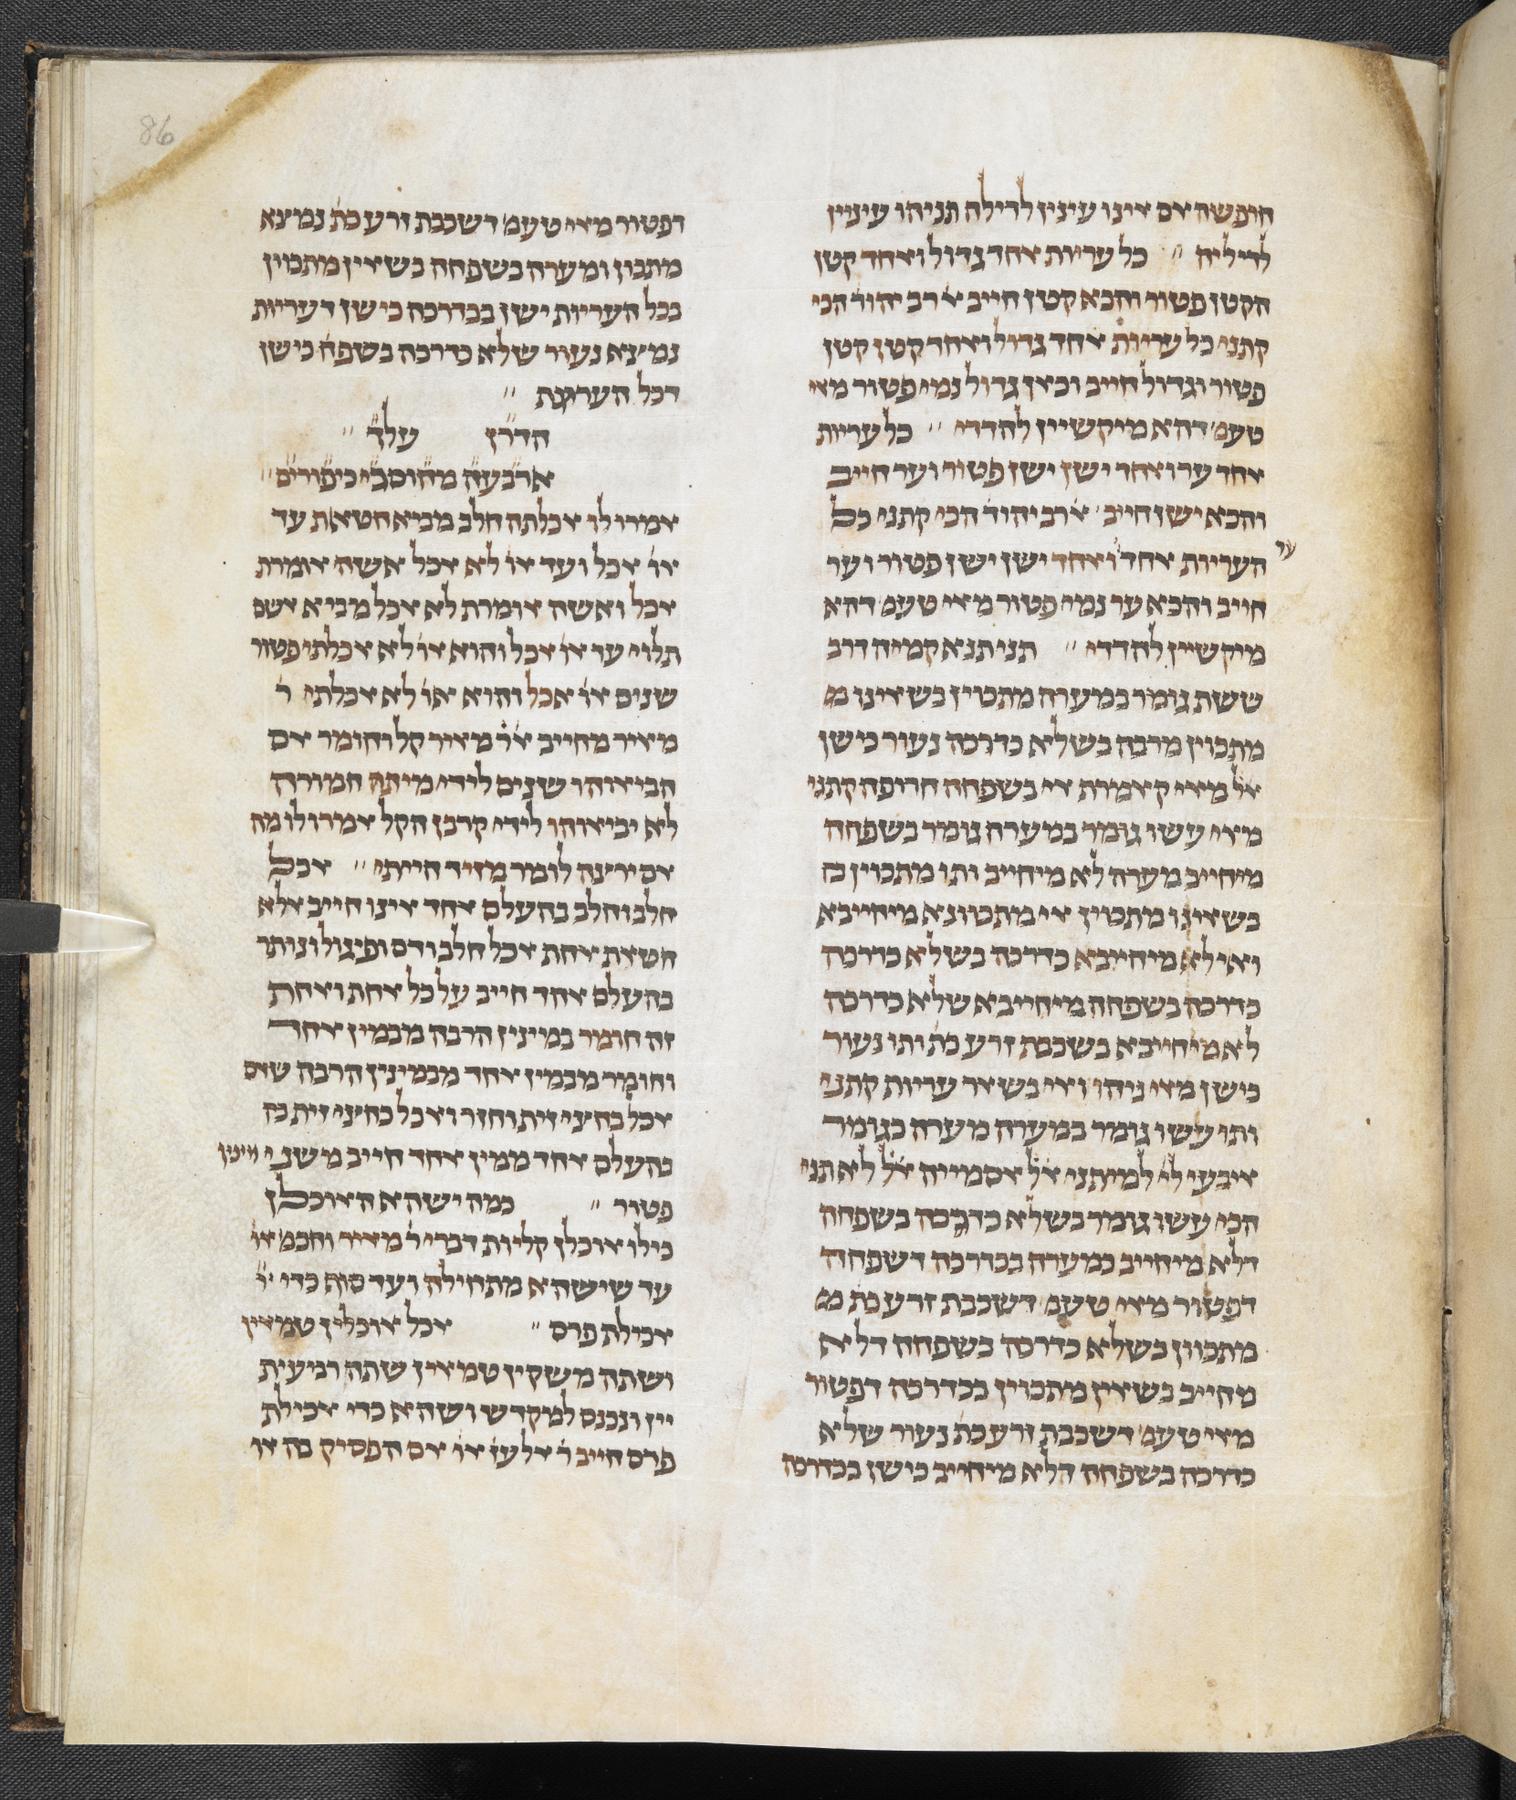 86
חופשה אם אינו עינין לדילה תניהו עינין
לדיליה " כל עריות אחד גדול ואחד קטן
הקטן פטור והכא קטן חייב א׳ רב יהוד׳ הכי
קתני כל עריות אחד גדול ואחד קטן קטן
פטור וגדול חייב וכאן גדול נמי פטור מאי
טעמ׳ דהא מיקשיין להדדי " כל עריות
אחד ער ואחד ישן ישן פטור וער חייב
והכא ישן חייב א׳ רב יהוד׳ הכי קתני כל
ער
העריות אחד ואחד ישן ישן פטור וער
חייב והכא ער נמי פטור מאי טעמ׳ דהא
מיקשיין להדדי " תני תנא קמיה דרב
ששת גומר כמערה מתכוין כשאינו מ
מתכוין כדרכה כשלא כדרכה נעור כישן
א׳ל מאי קאמרת אי בשפחה חרופה קתני
מאי עשו גומר כמערה גומר בשפחה
מיחייב מערה לא מיחייב ותו מתכוין כ
כשאינו מתכוין אי מתכוונא מיחייבא
ואי לא מיחייבא כדרכה כשלא כדרכה
כדרכה בשפחה מיחייבא שלא כדרכה
לא מיחייבא בשכבת זרע כת׳ ותו נעור
כישן מאי ניהו ואי בשאר עריות קתני
ותו עשו גומר כמערה מערה כגומר
איבעי לי׳ למיתני א׳ל אסמייה א׳ל לא תני
הכי עשו גומר כשלא כדרכה בשפחה
דלא מיחייב כמערה בכדרכה דשפחה
דפטור מאי טעמ׳ דשכבת זרע כת׳ מ
מתכוון כשלא כדרכה בשפחה דלא
מחייב כשאין מתכוין בכדרכה דפטור
מאי טעמ׳ דשכבת זרע כת׳ נעור שלא
כדרכה בשפחה דלא מיחייב כישן בכדרכה
דפטור מאי טעמ׳ דשכבת זרע כת׳ נמצא
מתכוין ומערה בשפחה כשאין מתכוין
בכל העריות ישן בכדרכה כישן דעריות
נמצא נעור שלא כדרכה בשפח׳ כישן
דכל העריות "
הדרן עלך "
ארבעה מחוסרי כיפורים "
אמרו לו אכלתה חלב מביא חטאת עד
או׳ אכל ועד או׳ לא אכל אשה אומרת
אכל ואשה אומרת לא אכל מביא אשם
תלוי עד או׳ אכל והוא או׳ לא אכלתי פטור
שנים או׳ אכל והוא או׳ לא אכלתי ר׳
מאיר מחייב א׳ר׳ מאיר קל וחומר אם
הביאוהו שנים לידי מיתה חמורה
לא יביאוהו לידי קרבן הקל אמרו לו מה
אם ירצה לומר מזיד הייתי " אכל
חלב וחלב בהעלם אחד אינו חייב אלא
חטאת אחת אכל חלב ודם ופיגול ונותר
בהעלם אחד חייב על כל אחת ואחת
זה חומר במינין הרבה מבמין אחד
וחומר מבמין אחד מבמינין הרבה שאם
אכל כחצי זית וחזר ואכל כחצי זית בה
בהעלם אחד ממין אחד חייב משני מינין
פטור " כמה ישהא האוכלן
כילו אוכלן קליות דברי ר׳ מאיר וחכמ׳ או׳
עד שישהא מתחילה ועד סוף כדי
אכילת פרס " אכל אוכלין טמאין
ושתה משקין טמאין שתה רביעית
יין ונכנס למקדש ושהא כדי אכילת
פרס חייב ר׳ אלעז׳ או׳ אם הפסיק בה או